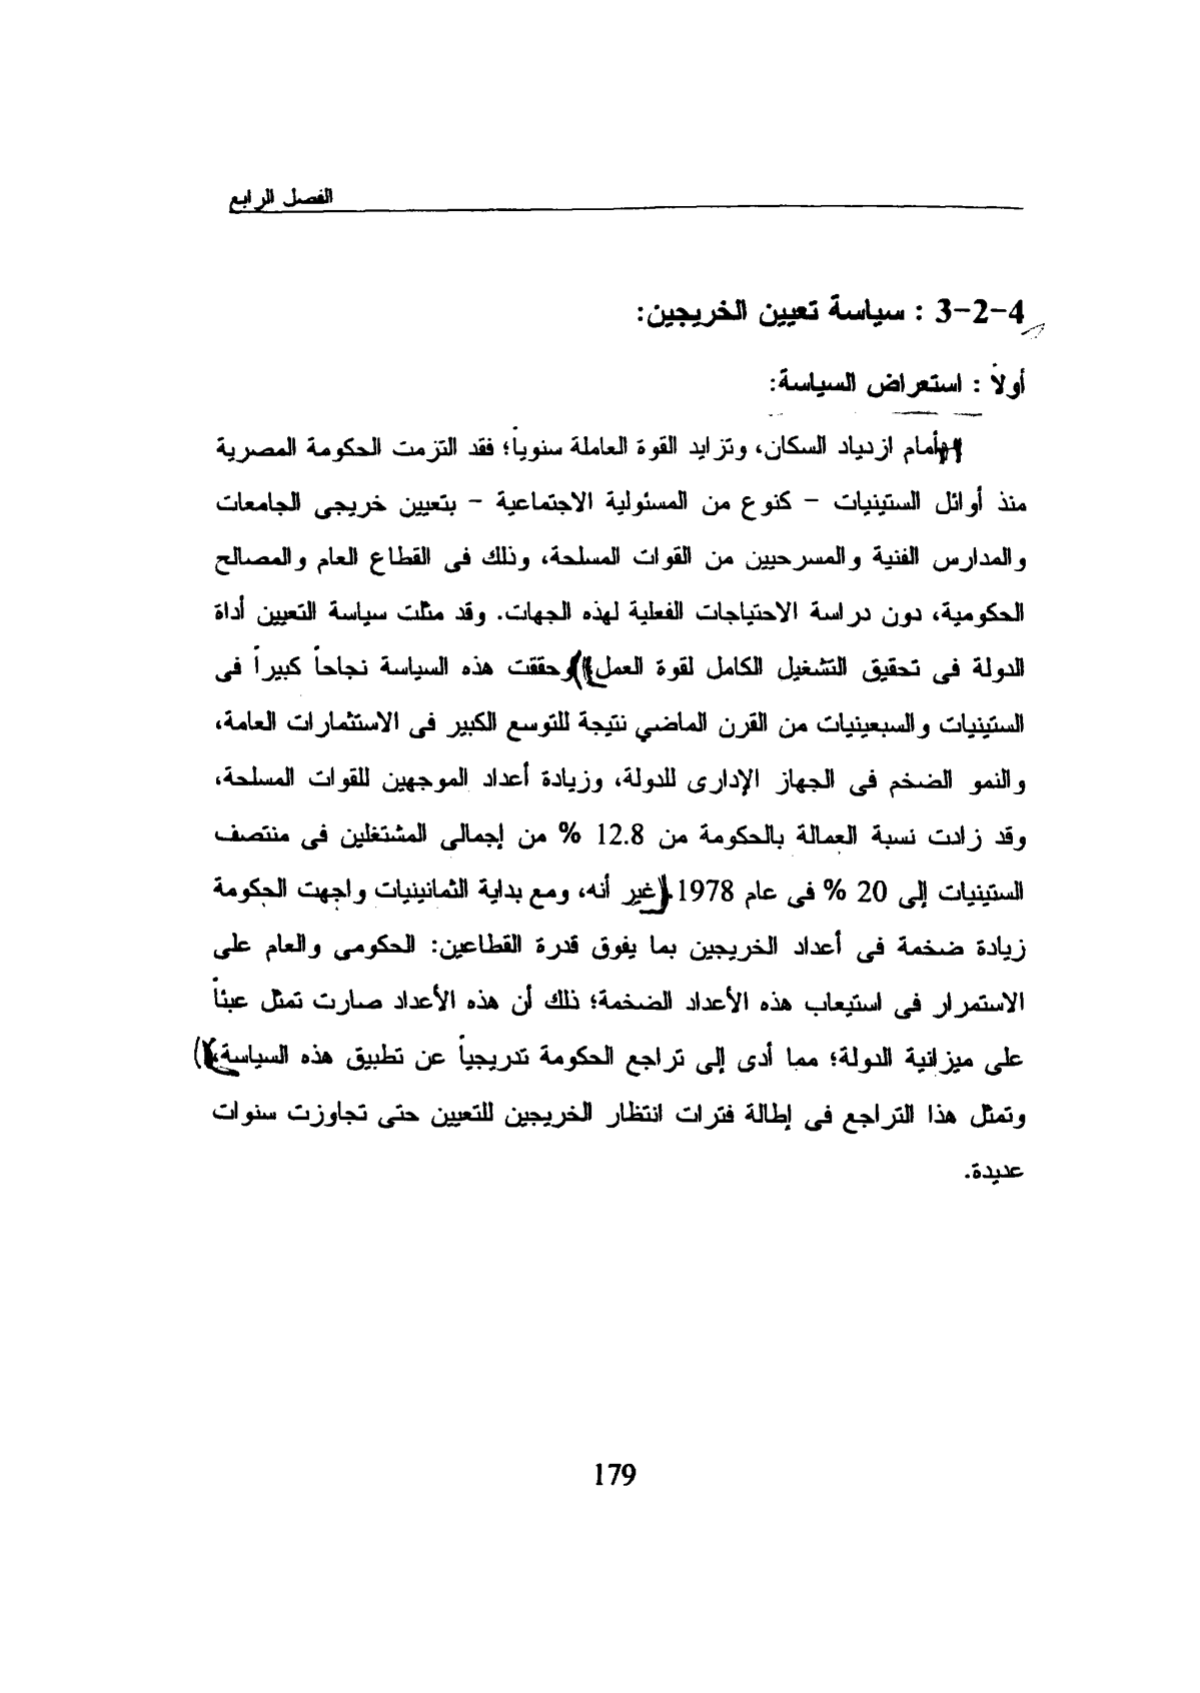 الفصل الرابع
4-2-3 : سياسة تعيين الخريجين:
أولاً : استعراض السياسة:
أمام ازدياد السكان، وتزايد القوة العاملة سنوياً؛ فقد التزمت الحكومة المصرية
منذ أوائل الستينيات - كنوع من المسئولية الاجتماعية - بتعيين خريجى الجامعات
والمدارس الفنية والمسرحيين من القوات المسلحة، وذلك فى القطاع العام والمصالح
الحكومية، دون دراسة الاحتياجات الفعلية لهذه الجهات. وقد مثلت سياسة التعيين أداة
الدولة فى تحقيق التشغيل الكامل لقوة العمل وحققت هذه السياسة نجاحاً كبيراً فى
الستينيات والسبعينيات من القرن الماضي نتيجة للتوسع الكبير فى الاستثمارات العامة،
والنمو الضخم فى الجهاز الإدارى للدولة، وزيادة أعداد الموجهين للقوات المسلحة،
وقد زادت نسبة العمالة بالحكومة من 12.8 % من إجمالى المشتغلين فى منتصف
الستينيات إلى 20 % فى عام 1978. غير أنه، ومع بداية الثمانينيات واجهت الحكومة
زيادة ضخمة فى أعداد الخريجين بما يفوق قدرة القطاعين: الحكومى والعام على
الاستمرار فى استيعاب هذه الأعداد الضخمة؛ ذلك أن هذه الأعداد صارت تمثل عبئاً
على ميزانية الدولة؛ مما أدى إلى تراجع الحكومة تدريجياً عن تطبيق هذه السياسة،
وتمثل هذا التراجع فى إطالة فترات انتظار الخريجين للتعيين حتى تجاوزت سنوات
عديدة.
179